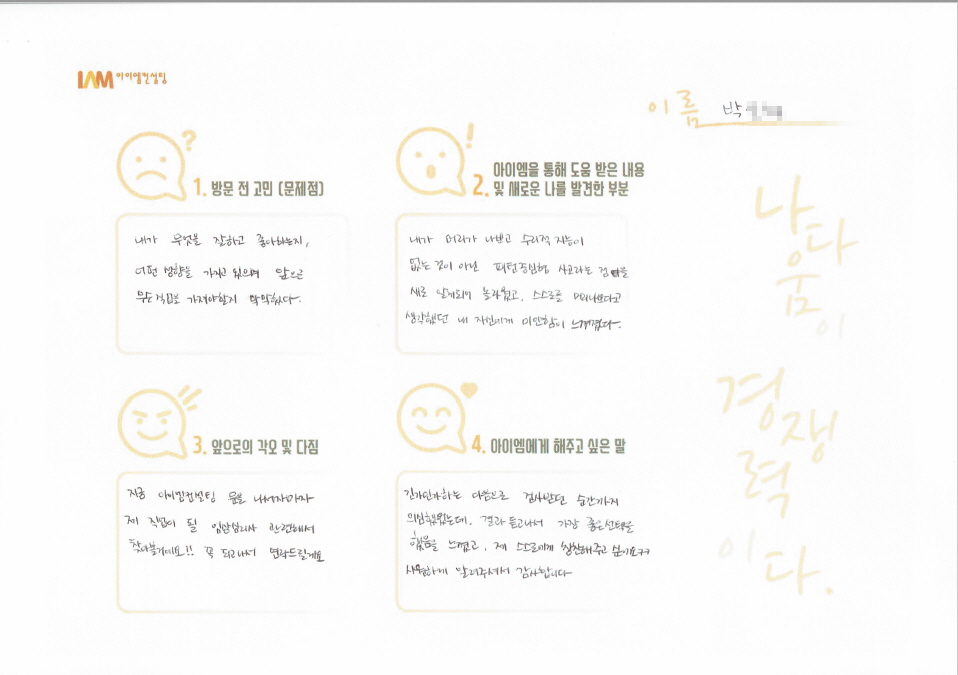 IAM 아이엠컨설팅
이름 박
1. 방문 전 고민 (문제점)
내가 무엇을 잘하고 좋아하는지,
어떤 방향을 가지고 있으며 앞으로
무슨 직업을 가져야할지 막막했다.
2. 아이엠을 통해 도움 받은 내용
및 새로운 나를 발견한 부분
내가 머리가 나쁘고 수리적 지능이
없는 것이 아닌 패턴중심형 사고라는 점을
새로 알게되어 놀라웠고, 스스로를 머리나쁘다고
생각했던 내 자신에게 미안함이 느껴졌다.
3. 앞으로의 각오 및 다짐
지금 아이엠컨설팅 문을 나서자마자
제 직업이 될 임상심리사 관련해서
찾아볼게요!! 꼭 되고나서 연락드릴게요
4. 아이엠에게 해주고 싶은 말
긴가민가하는 마음으로 검사받던 순간까지
의심했었는데, 결과 듣고나서 가장 좋은선택을
했음을 느꼈고, 제 스스로에게 칭찬해주고 싶어요ㅋㅋ
시원하게 알려주셔서 감사합니다
나다움이
경쟁력이다.